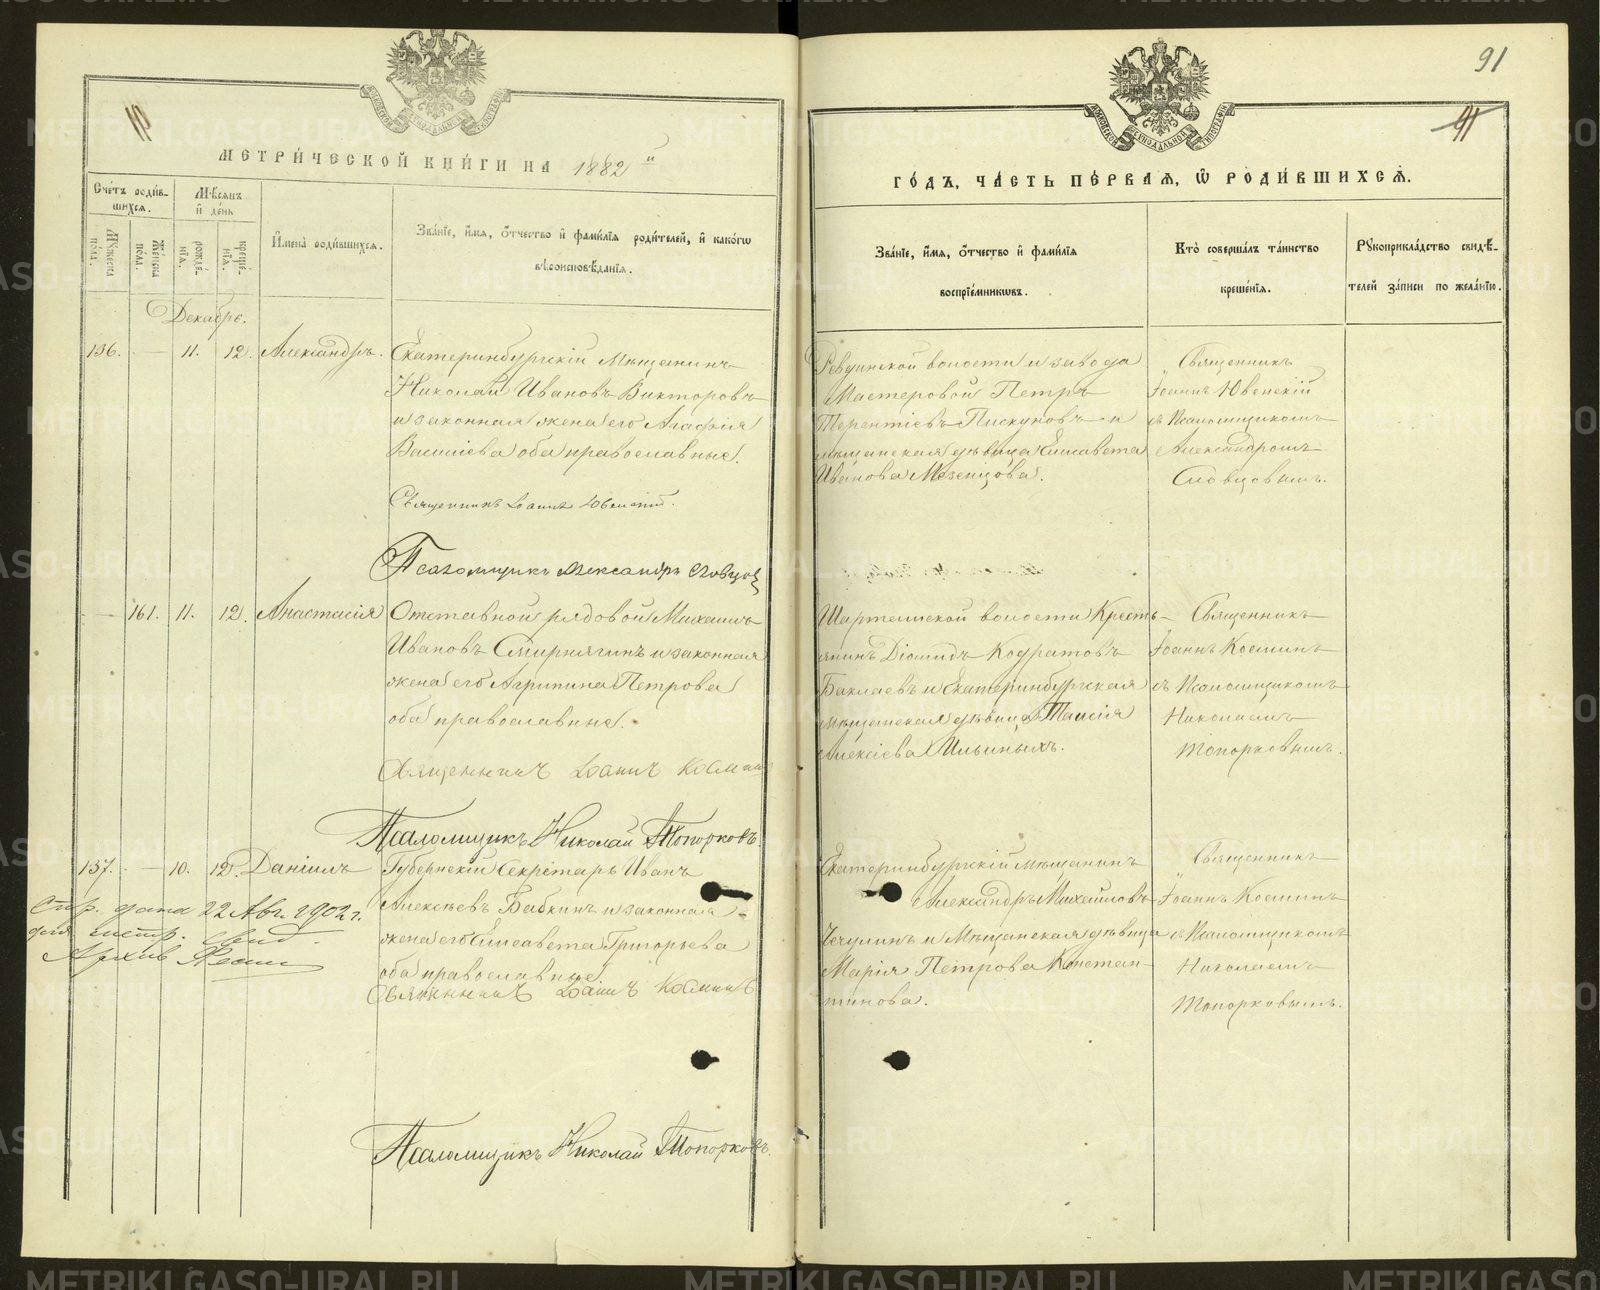 91
МЕТРИ́ЧЕСКОЙ КНИ́ГИ НА 1882й
ГО́ДЪ, ЧА́СТЬ ПЕ́РВАѦ, Ѡ҆ РОДИ́ВШИХСѦ.
Сче́тъ роди́в-
шихся.
Мѣ́сяцъ
и҆ де́нь
Мꙋ́жеска
по́ла.
Же́нска
по́ла.
рожде́-
нїя.
креще́-
нїя.
И҆мена̀ роди́вшихся.
Зва́нїе, и҆́мя, ѻ҆́тчество и҆ фами́лїя роди́телей, и҆ како́гѡ
вѣроисповѣ́данїя.
Зва́нїе, и҆́мя, ѻ҆́тчество и҆ фами́лїя
воспрїе́мникѡвъ.
Кто̀ соверша́лъ та́инство
креще́нїя.
Рꙋкоприкла́дство свидѣ́-
телей за́писи по жела́нїю.
Декабрь.
136. — 11. 12. Александръ.
Екатеринбургскій Мѣщанинъ
Николай Ивановъ Викторовъ
и законная жена его Агафія
Василіева оба православные.
Священникъ Іоаннъ Ювенскій.
Псаломщикъ Александръ Словцов
Ревдинской волости и завода
Мастеровой Петръ
Терентіевъ Пискуновъ и
мѣщанская дѣвица Елисавета
Иванова Мезенцова.
Священникъ
Іоаннъ Ювенскій
съ Псаломщикомъ
Александромъ
Словцовымъ.
— 161. 11. 12. Анастасія
Отставной рядовой Михаилъ
Ивановъ Смирнягинъ и законная
жена его Агрипина Петрова
оба православные.
Священникъ Іоаннъ Косминъ
Псаломщикъ Николай Топорковъ.
Шарташской волости Кресть-
янинъ Діомидъ Кодратовъ
Баклаевъ и Екатеринбургская
мѣщанская дѣвица Таисія
Алексіева Ильиныхъ.
Священникъ
Іоаннъ Косминъ
съ Псаломщикомъ
Николаемъ
Топорковымъ.
137. — 10. 12. Даніилъ
Губернскій Секретарь Иванъ
Алексѣевъ Бабкинъ и законная
жена его Елисавета Григорьева
оба православные.
Священникъ Іоаннъ Косминъ
Псаломщикъ Николай Топорковъ.
спр. дана 22 Авг. 1902 г.
Архив
Екатеринбургскій мѣщанинъ
Александръ Михайловъ
Чечулинъ и Мѣщанская дѣвица
Марія Петрова Констан-
тинова.
Священникъ
Іоаннъ Косминъ
съ Псаломщикомъ
Николаемъ
Топорковымъ.
METRIKI.GASO-URAL.RU